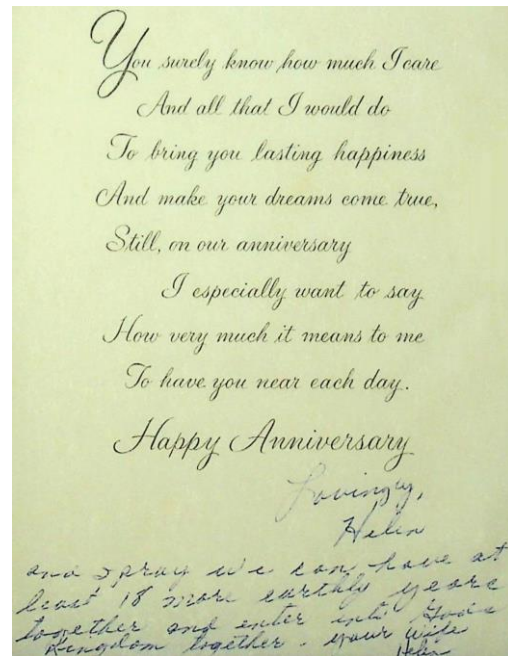 You surely know how much I care
And all that I would do
To bring you lasting happiness
And make your dreams come true,
Still, on our anniversary
I especially want to say
How very much it means to me
To have you near each day.
Happy Anniversary
Lovingly,
Helen
and I pray we can have at
least 18 more earthly years
together and enter into God's
Kingdom together - your wife
Helen